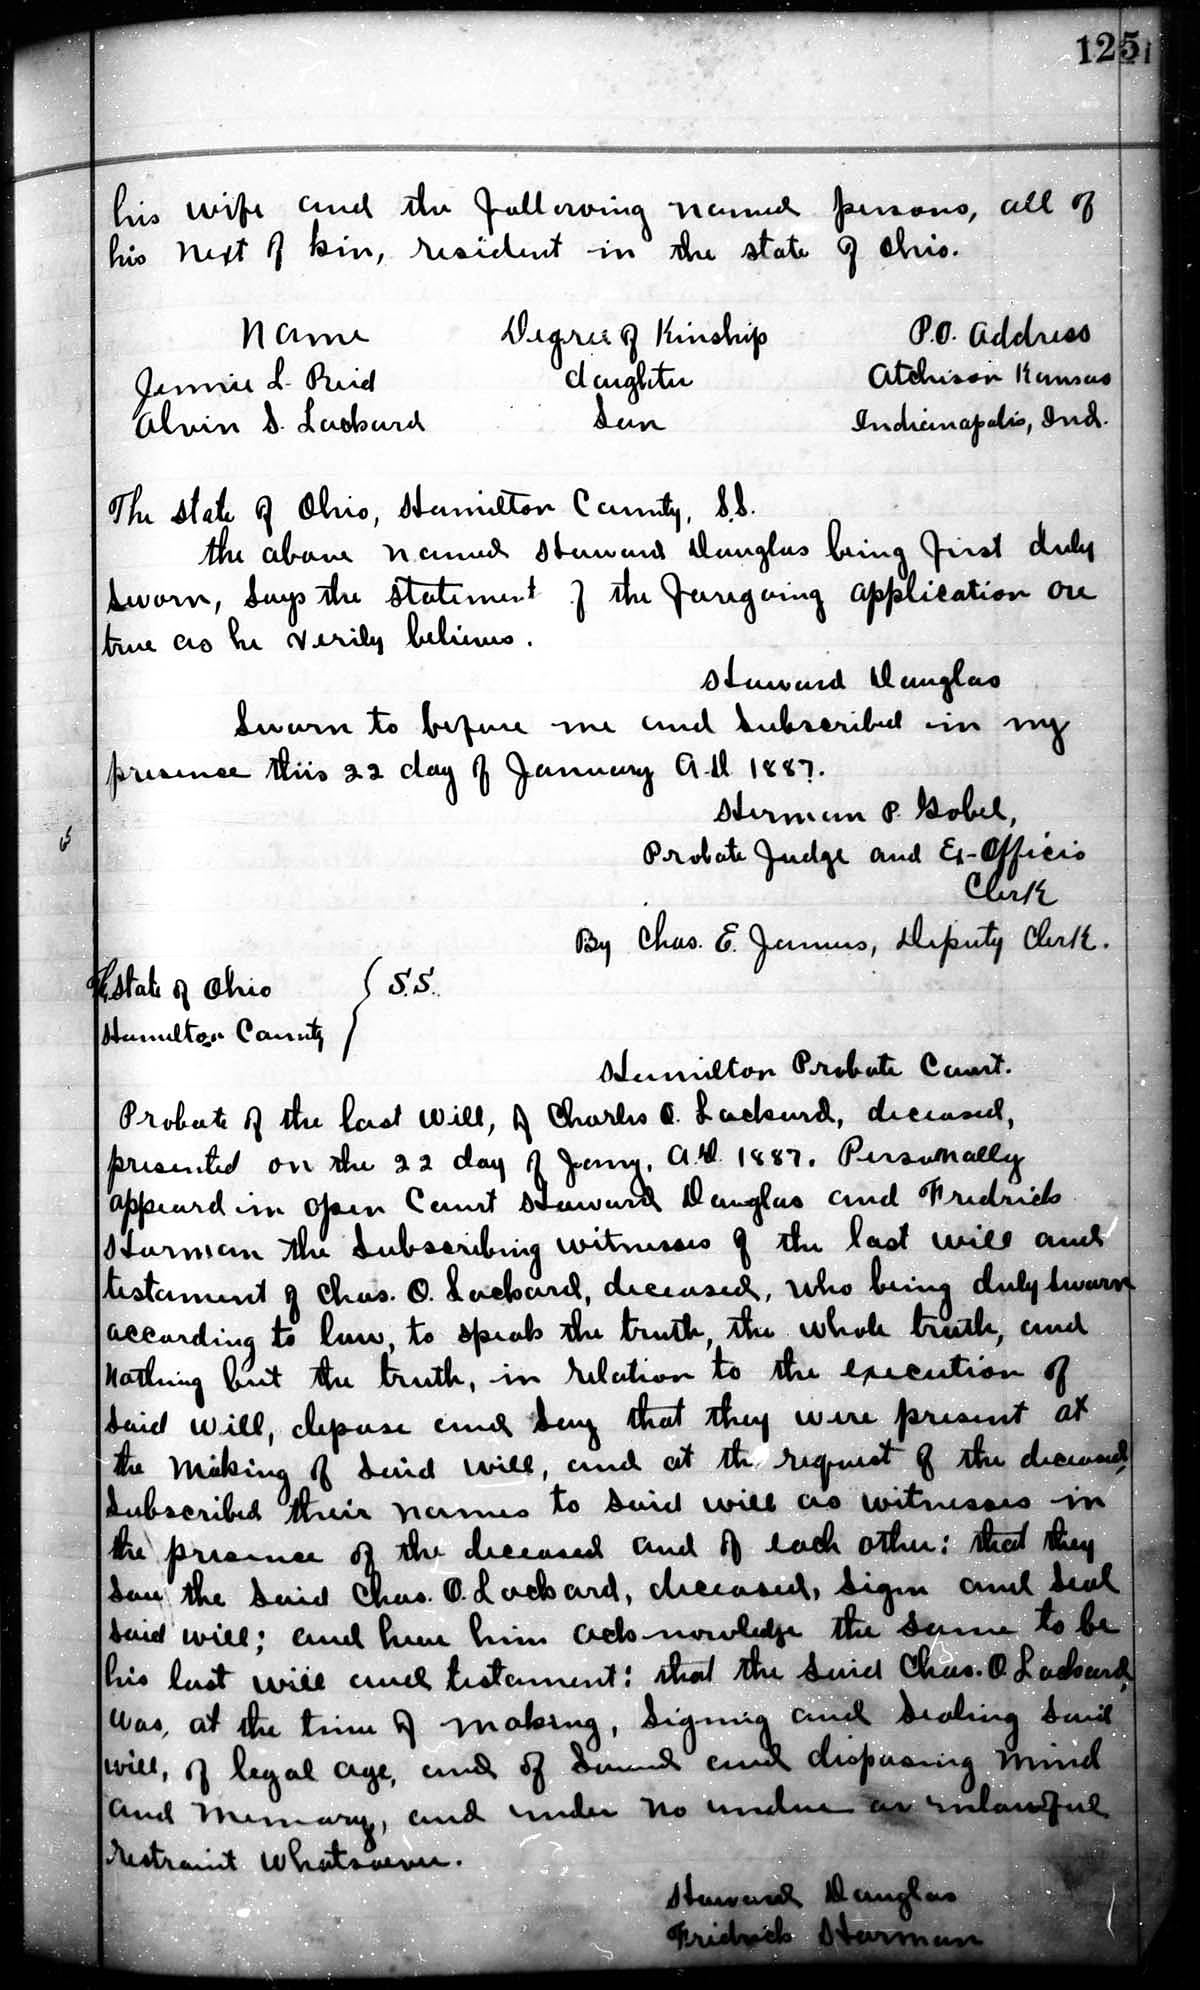 125
his wife and the following named persons, all of
his next of kin, resident in the state of Ohio.
Name Degree of Kinship P.O. Address
Jennie L. Reid daughter Atchison Kansas
Alvin S. Lockard Son Indianapolis, Ind.
The state of Ohio, Hamilton County, S.S.
the above named Howard Douglas being first duly
sworn, says the statement of the foregoing application are
true as he verily believes.
Howard Douglas
Sworn to before me and subscribed in my
presence this 22 day of January A.D 1887.
Herman P. Gobel,
Probate Judge and Ex-Officio
Clerk
By Chas. E. James, Deputy Clerk.
The State of Ohio } S.S.
Hamilton County
Hamilton Probate Court.
Probate of the last will, of Charles O. Lockard, deceased,
presented on the 22 day of Jany, A.D. 1887. Personally
appeard in open Court Howard Douglas and Fredrick
Harman the subscribing witnesses of the last will and
testament of Chas. O. Lockard, deceased, who being duly sworn
according to law, to speak the truth, the whole truth, and
nothing but the truth, in relation to the execution of
said will, depose and say that they were present at
the making of said will, and at the request of the deceased,
subscribed their names to said will as witnesses in
the presence of the deceased and of each other: that they
saw the said Chas. O. Lockard, deceased, sign and seal
said will; and hear him acknowledge the same to be
his last will and testament: that the said Chas. O. Lockard,
was, at the time of making, signing and sealing said
will, of legal age, and of sound and disposing mind
and memory, and under no undue or unlawful
restraint whatsoever.
Howard Douglas
Fridrick Harman